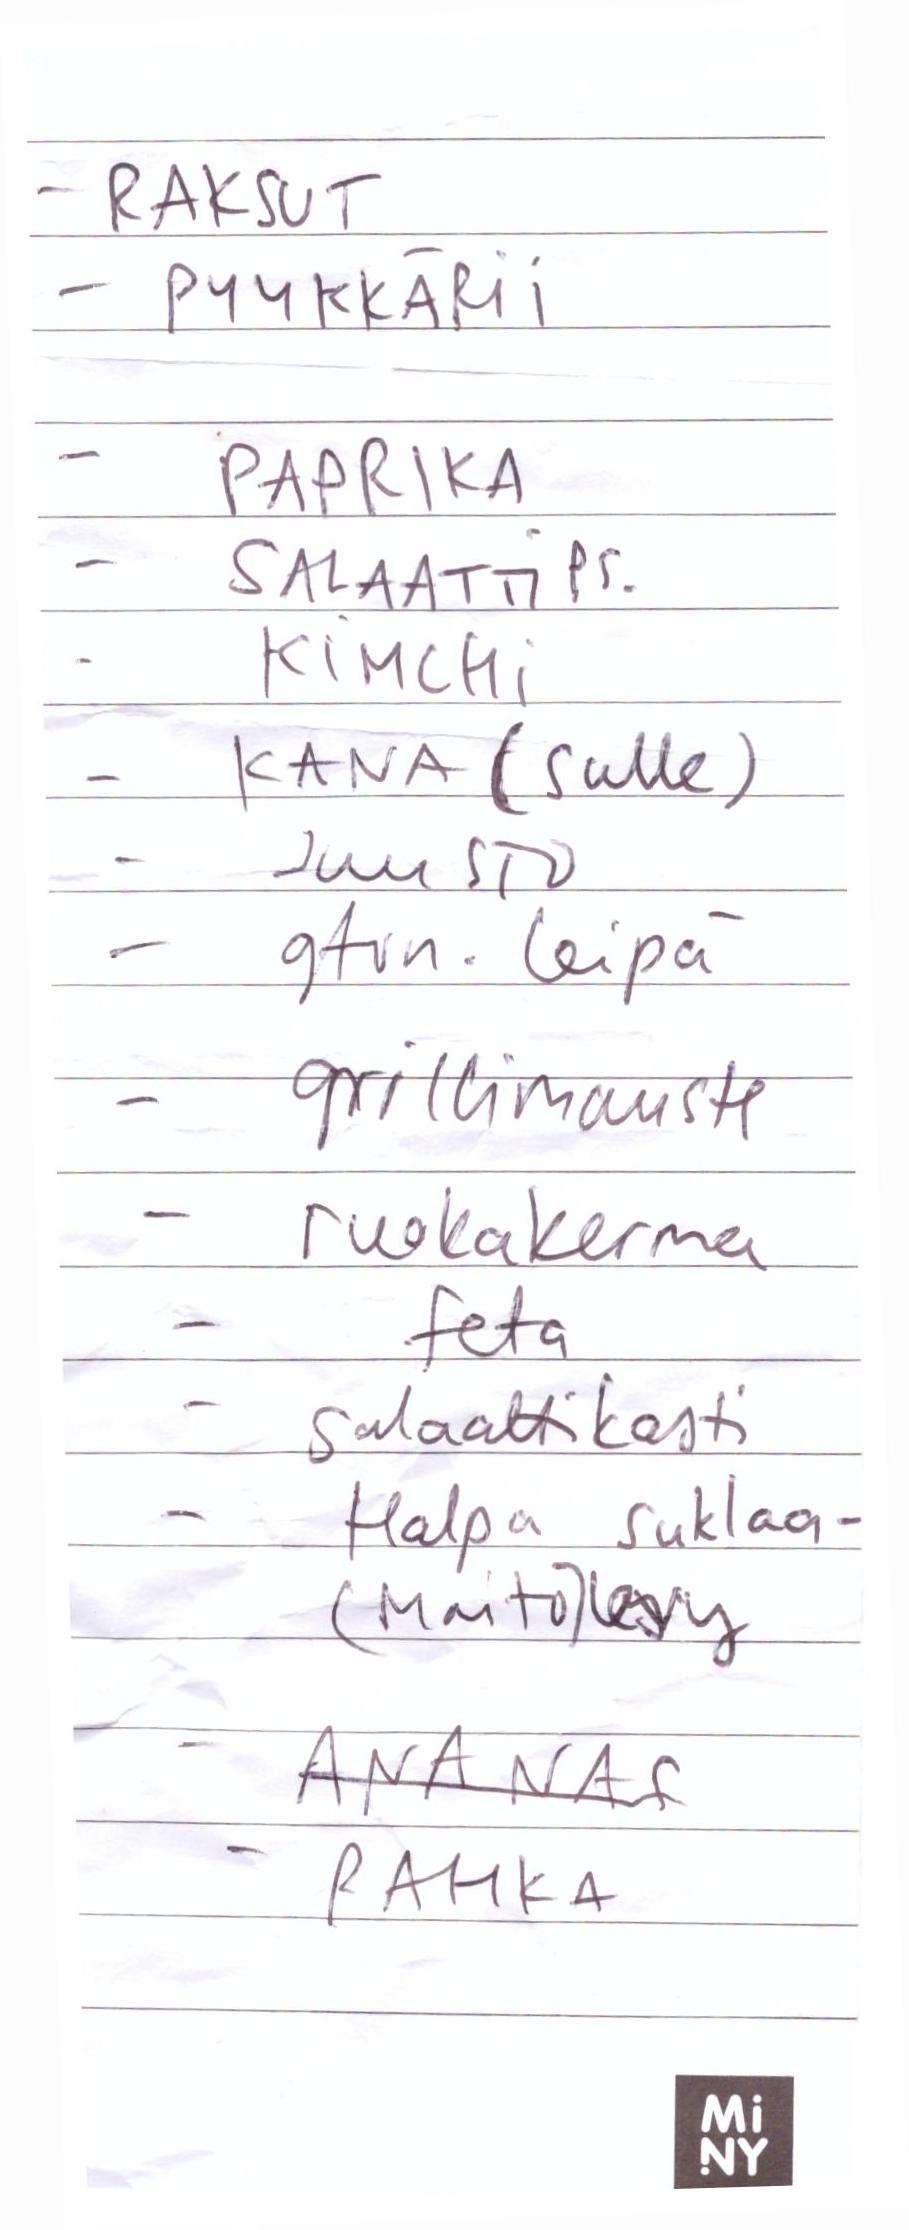 - RAKSUT
- PYYKKÄRII
- PAPRIKA
- SALAATTI PS.
- KIMCHI
- KANA (Sulle)
- Juusto
- gtun. leipä
- grillimauste
- ruokakerma
- feta
- salaattikasti
- Halpa suklaa-
(Maito)levy
- ANANAS
- RAHKA
Mi
NY